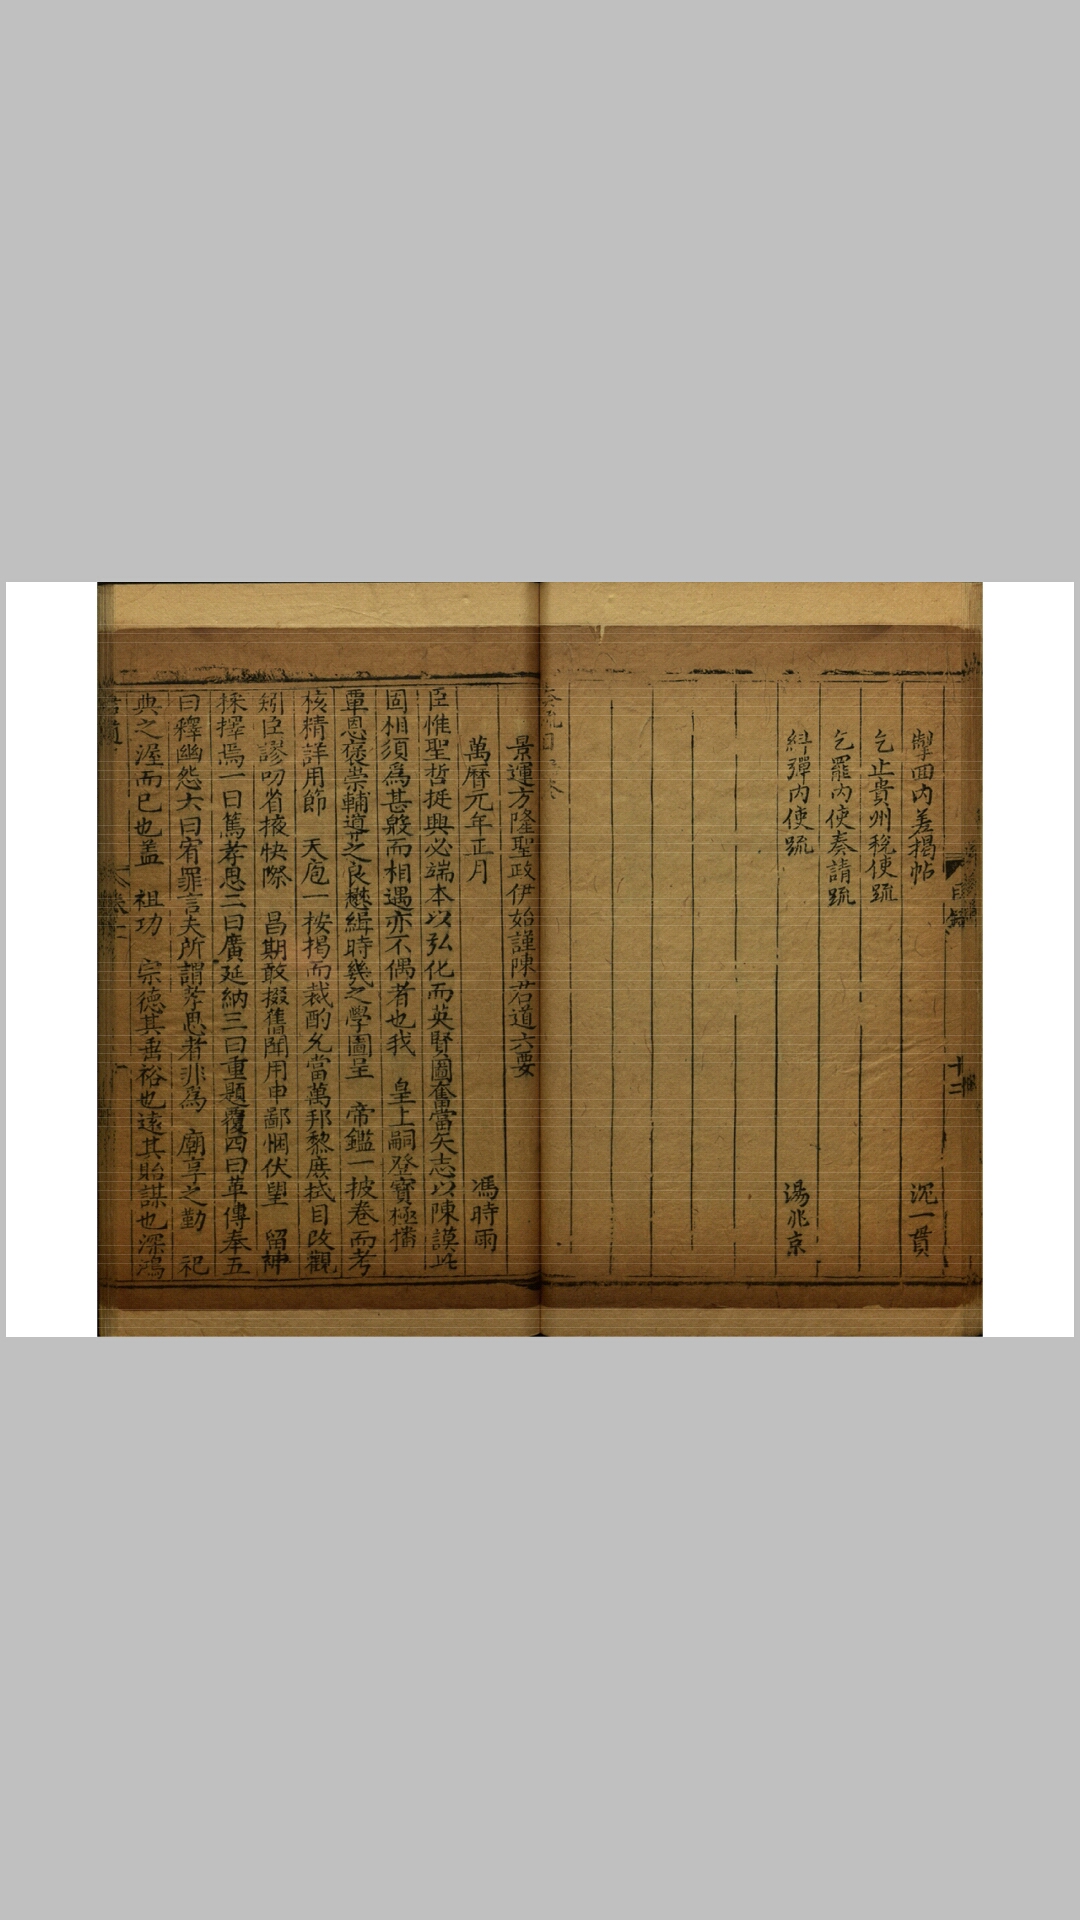 掣回內差揭帖 沉一貫
乞止貴州稅使䟽
乞罷內使奏請䟽
糾彈內使䟽 湯兆京
目錄 十二
景運方隆聖政伊始謹陳君道六要
萬曆元年正月 馮時雨
臣惟聖哲挺興必端本以弘化而英賢圖奮當矢志以陳謨此
固相須為甚殷而相遇亦不偶者也我 皇上嗣登寶極播
覃恩褒崇輔導之良懋緝時幾之學圖呈 帝鑑一披卷而考
核精詳用節 天庖一按揭而裁酌允當萬邦黎庶拭目改觀
矧臣謬叨省掖快際 昌期敢掇舊聞用申鄙悃伏望 留神
採擇焉一曰篤孝思二曰廣延納三曰重題覆四曰革傳奉五
曰釋幽怨六曰宥罪言夫所謂孝思者非為 廟享之勤 祀
典之渥而已也盖 祖功 宗德其垂裕也遠其貽謀也深鴻